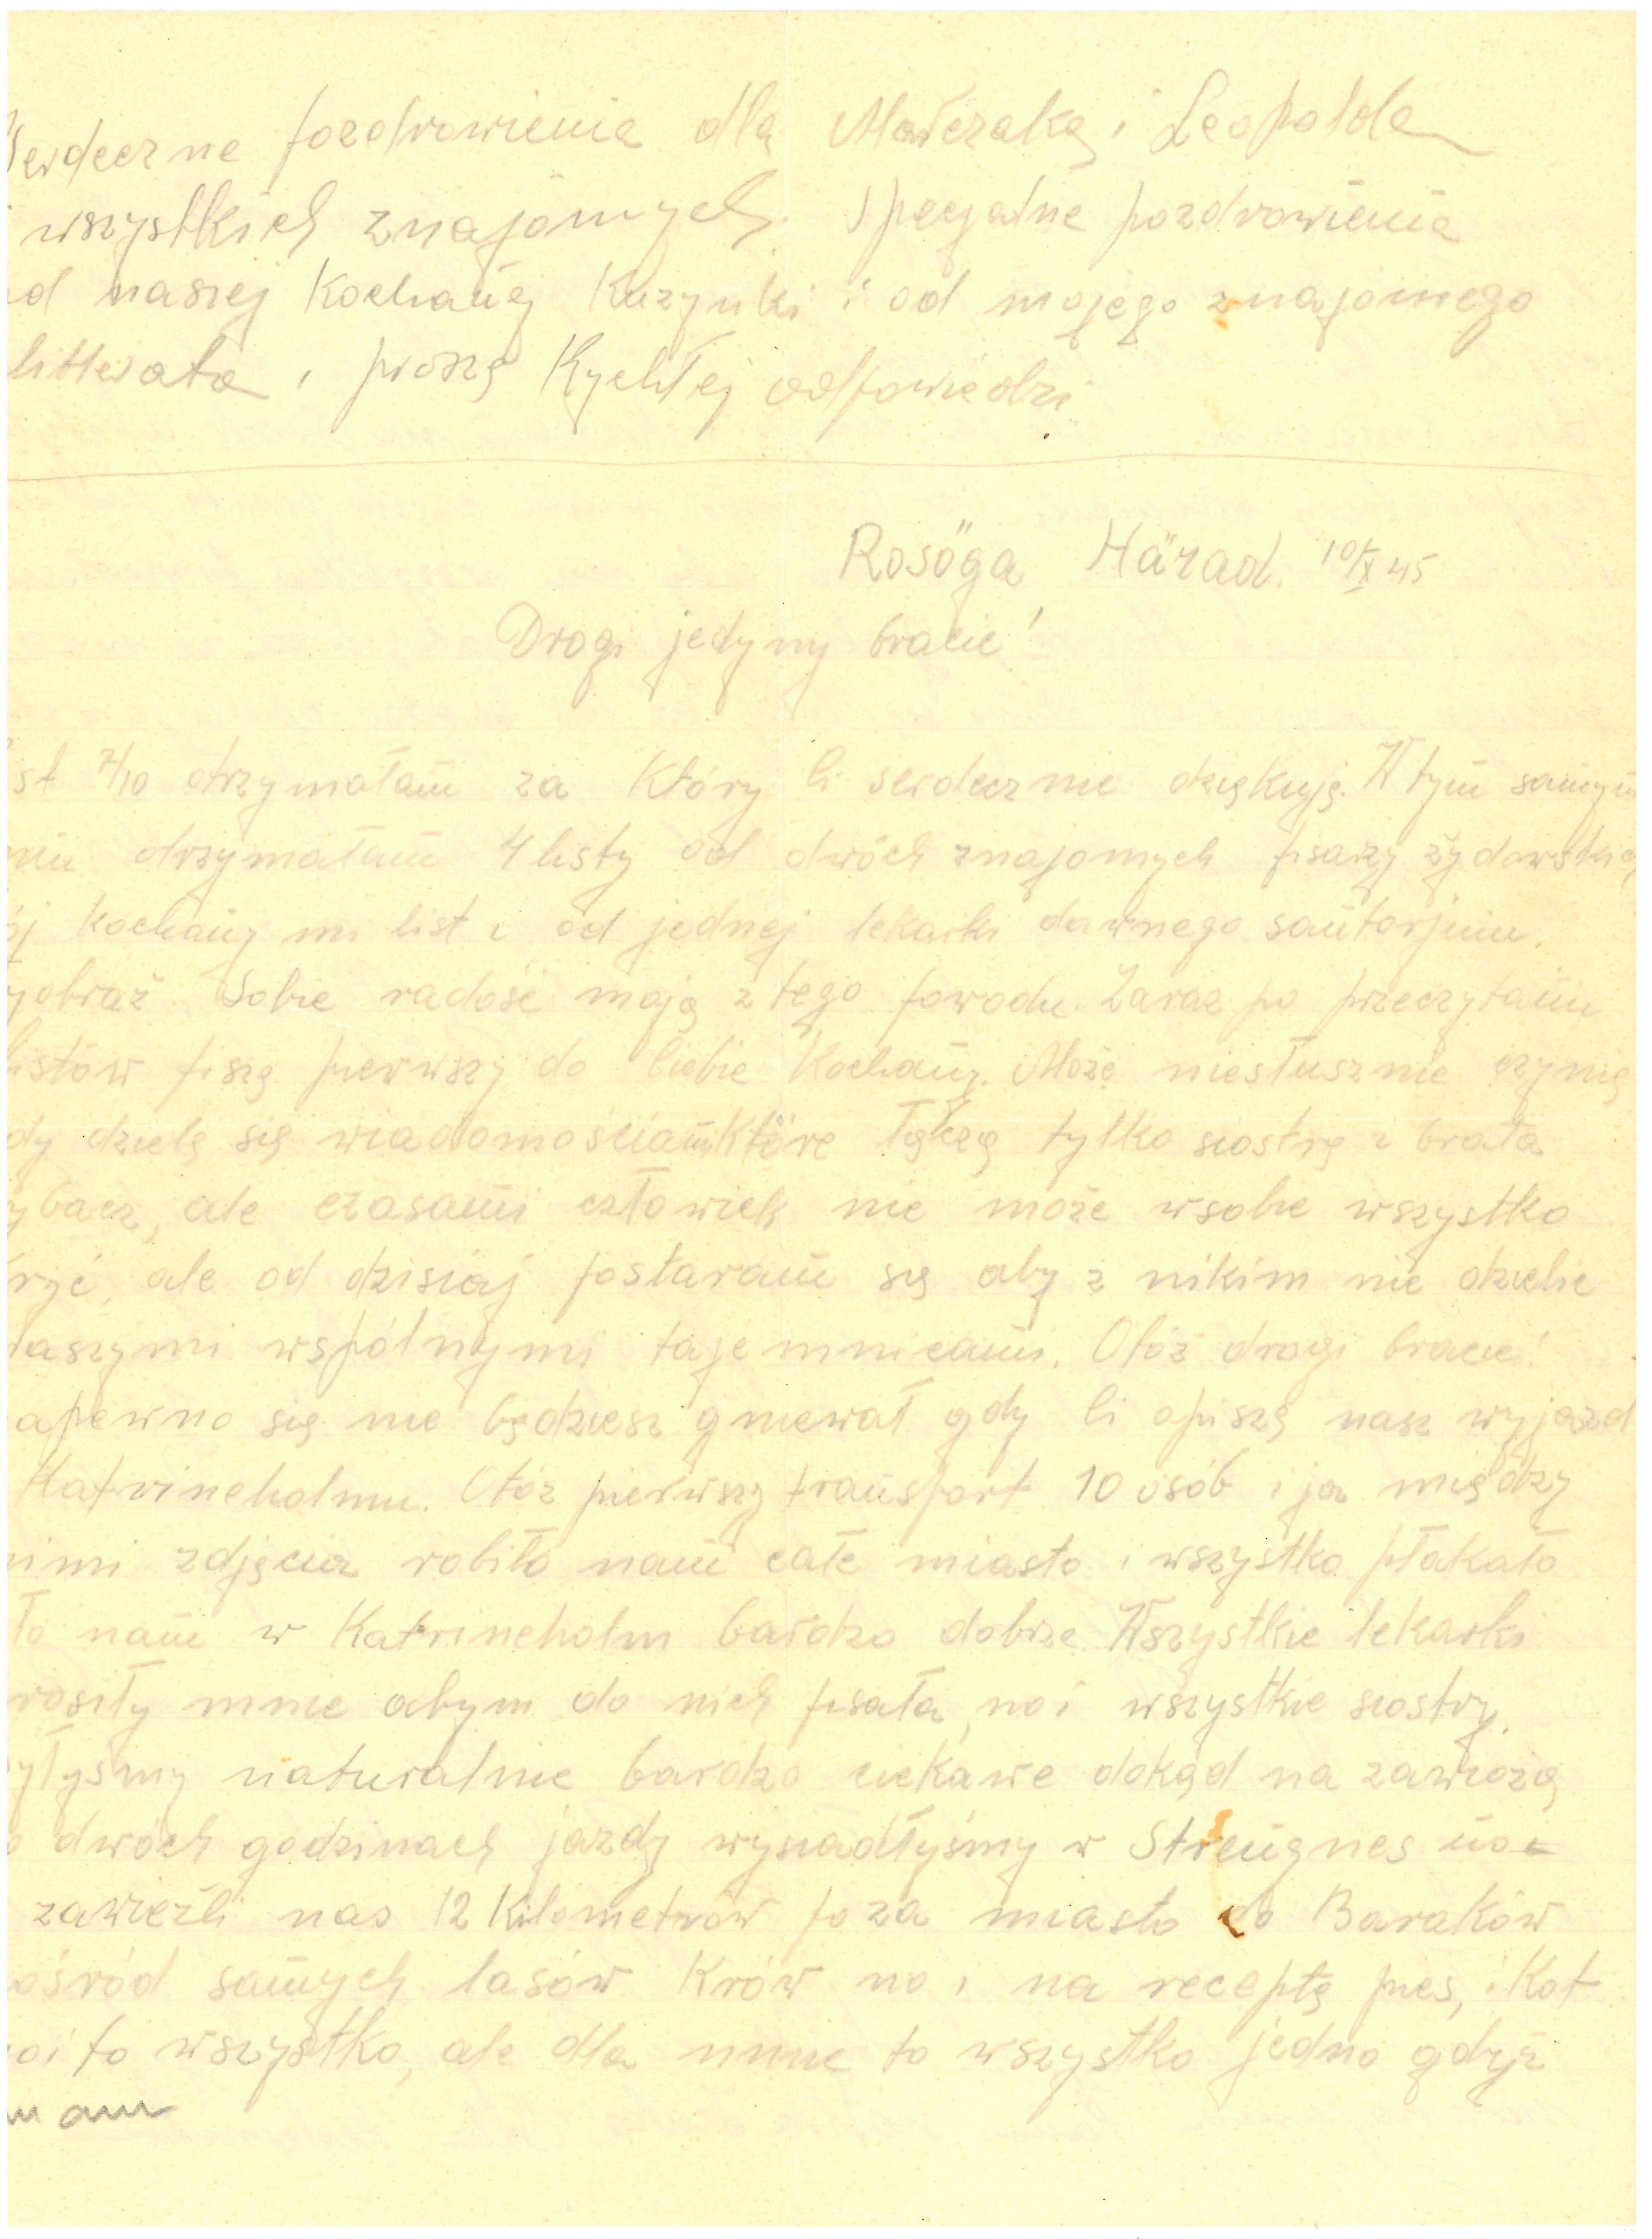 Serdeczne pozdrowienia dla Małczaka i Leopolda
i wszystkich znajomych. Specjalne pozdrowienia
od naszej Kochanej Kuzynki i od mojego znajomego
litterata, proszę Rychłej odpowiedzi
Rosöga Härad. 10/X 45
Drogi jedyny bracie!
st 7/10 otrzymałam za Który Ci serdecznie dziękuję. W tym samym
niu otrzymałam 4 listy od dwóch znajomych pisarzy żydowskich
ój Kochany mi list i od jednej lekarki dawnego santorjum.
yobraź Sobie radość moją z tego powodu. Zaraz po przeczytaniu
listów piszę pierwszy do Ciebie Kochany. Może niesłusznie czynię
dy dzielę się wiadomościami Które łączą tylko siostrę i brata
ybacz, ale czasami człowiek nie może wsobie wszystko
ryć, ale od dzisiaj postaram się aby z nikim nie dzielić
naszymi wspólnymi tajemnicami. Otóż drogi bracie!
apewno się nie będziesz gniewał gdy Ci opiszę nasz wyjazd
Katrineholmu. Otóż pierwszy transport 10 osób i ja między
nimi zdjęcia robiło nam całe miasto i wszystko płakało
ło nam w Katrineholm bardzo dobrze. Wszystkie lekarki
rosiły mnie abym do nich pisała, no i wszystkie siostry.
yłyśmy naturalnie bardzo ciekawe dokąd na zawiozą
o dwóch godzinach jazdy wysiadłyśmy w Strengnes
zawieźli nas 12 Kilometrów poza miasto do Baraków
ośród samych lasów Krów no i na receptę pies, i Kot
oi to wszystko, ale dla mnie to wszystko jedno gdyż
mam